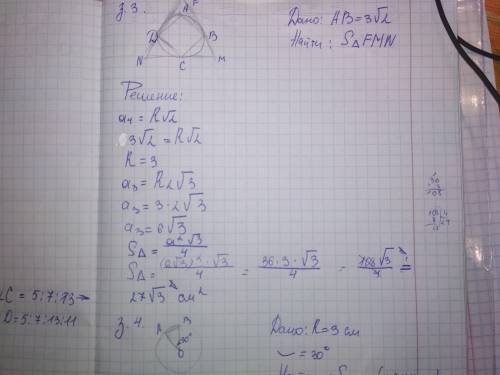 з. 3.
F
A
D
B
N
C
M
Дано: AB=3√2
Найти: S△FMN
Решение:
a₄ = R√2
3√2 = R√2
R = 3
a₃ = R2√3
a₃ = 3·2√3
a₃ = 6√3
S△ = a²√3/4
S△ = (6√3)²·√3/4 = 36·3·√3/4 = 108√3/4 =
27√3 см²
∠C = 5:7:13
D = 5:7:13:11
з. 4.
A
B
30°
O
Дано: R=3 см
◡ = 30°